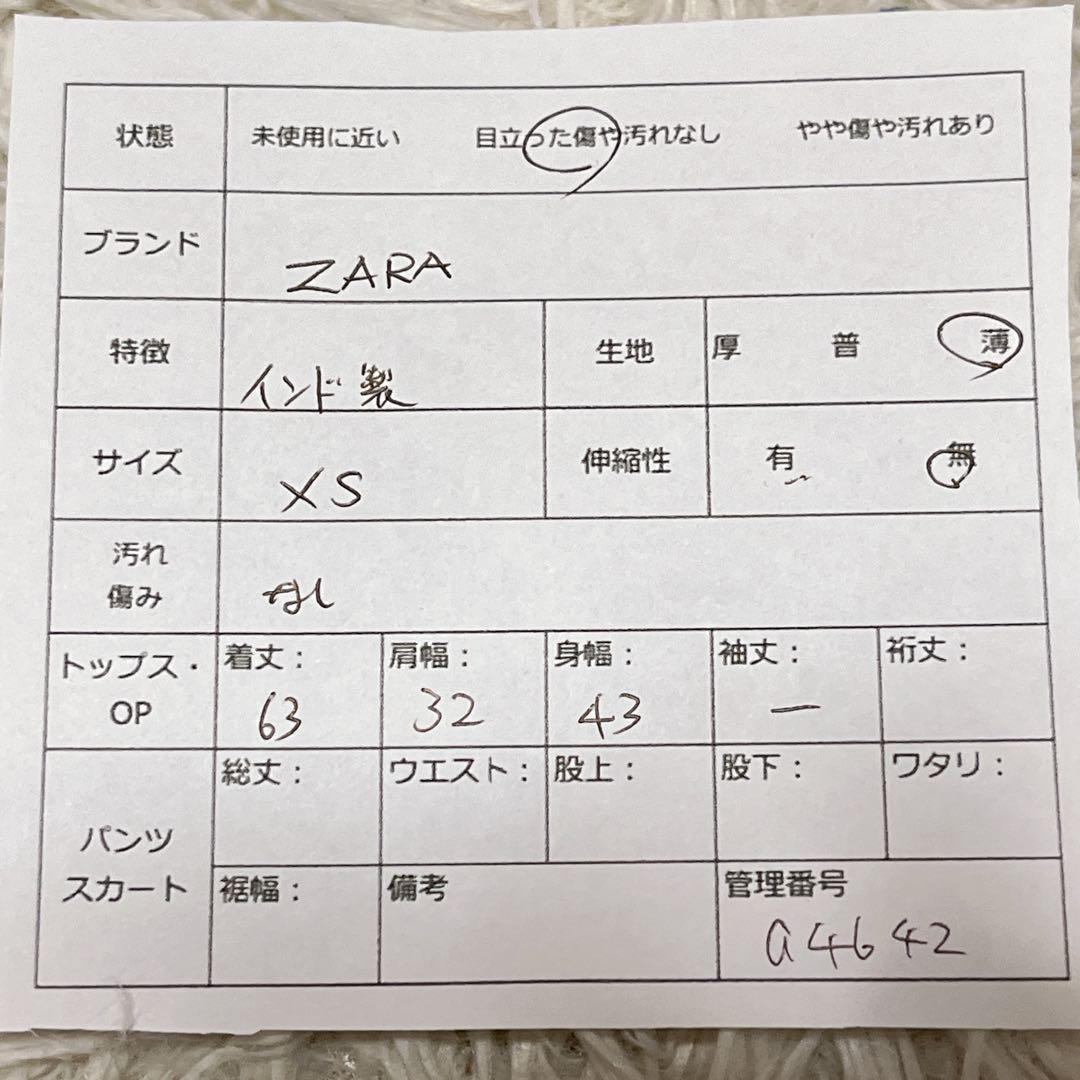 状態 未使用に近い 目立った傷や汚れなし やや傷や汚れあり
ブランド ZARA
特徴 インド製 生地 厚 普 薄
サイズ XS 伸縮性 有 無
汚れ
傷み なし
トップス・
OP
着丈： 肩幅： 身幅： 袖丈： 裄丈：
63 32 43 ー
パンツ
スカート
総丈： ウエスト： 股上： 股下： ワタリ：
裾幅： 備考 管理番号
a4642